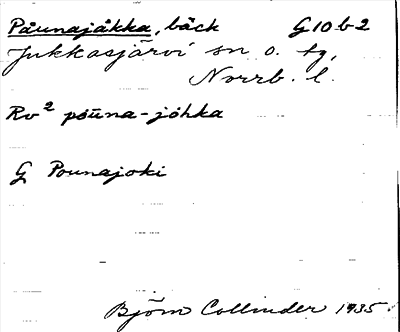 Påunajåkka, bäck G10b2
Jukkasjärvi sn o. tg,
Norrb. l.
Rv² pōūna-jòhka
G Pounajoki
Björn Collinder 1935.